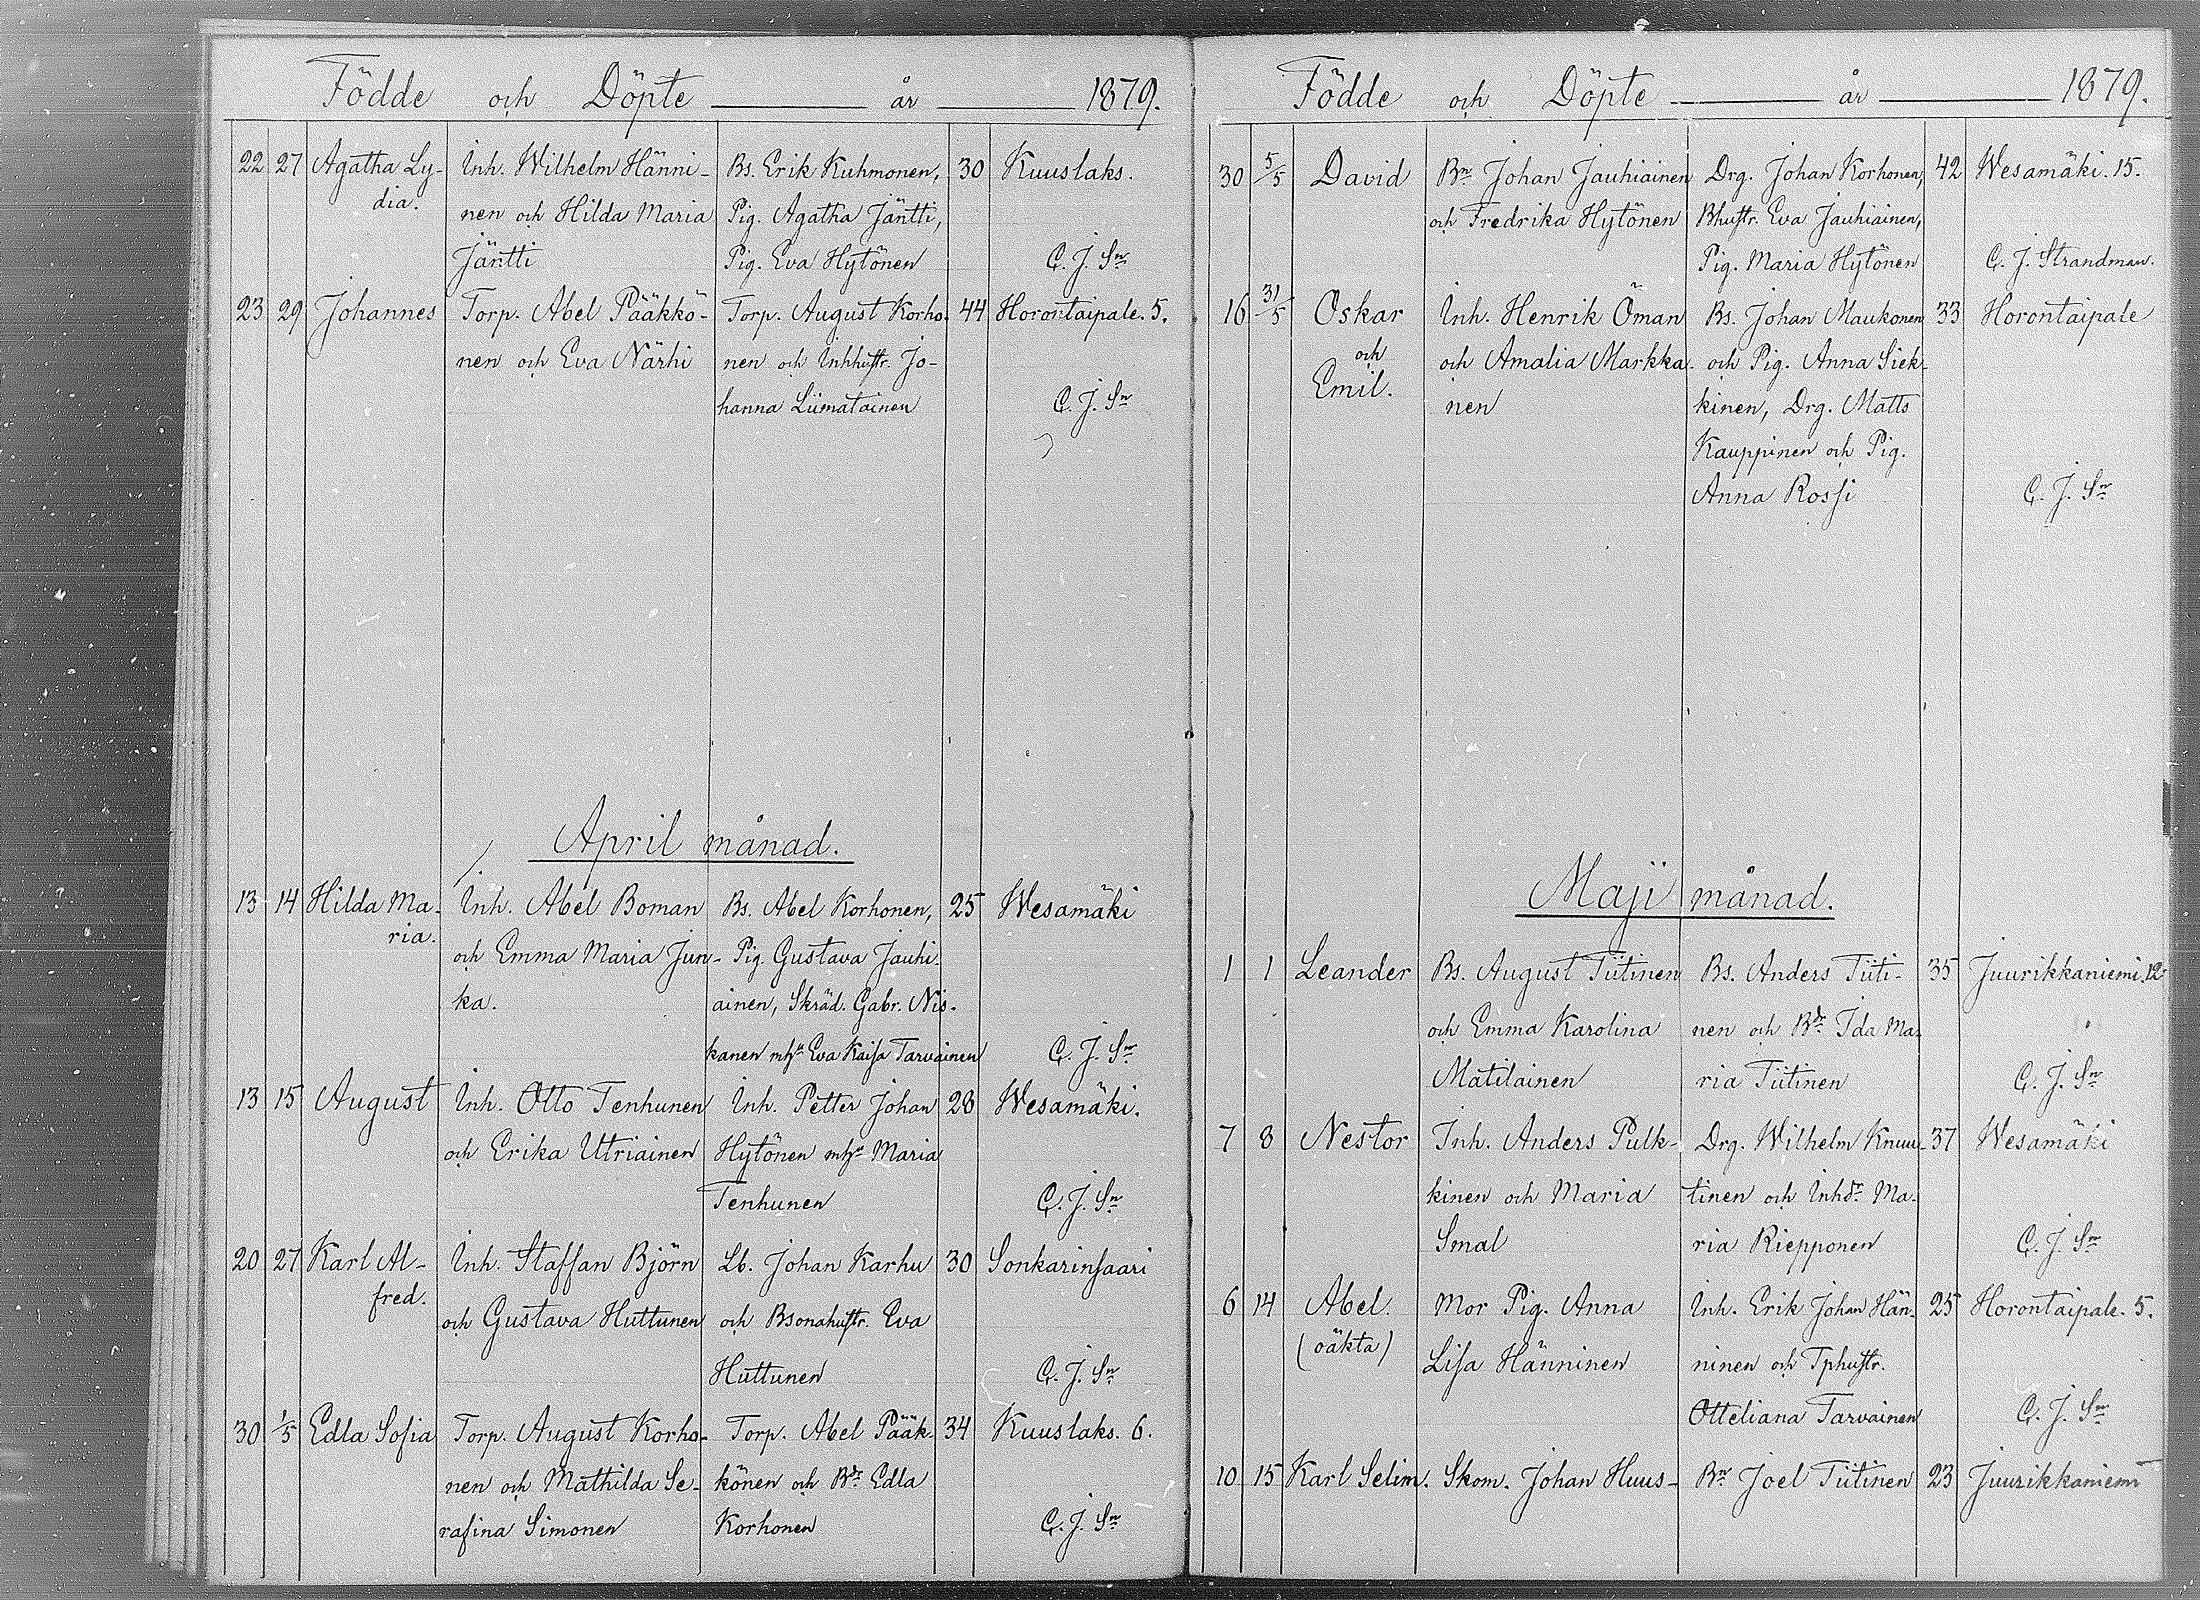 Födde och Döpte år 1879.
22 27 Agatha Ly- Inh. Wilhelm Hänni- Bs. Erik Kuhmonen, 30 Kuuslaks.
dia. nen och Hilda Maria Pig. Agatha Jäntti,
Jäntti Pig. Eva Hytönen C. J. Sn
23 29 Johannes Torp. Abel Pääkkö- Torp. August Korho- 44 Horontaipale. 5.
nen och Eva Närhi nen och Inhhustr. Jo-
hanna Liimatainen C. J. Sn
April månad.
13 14 Hilda Ma- Inh. Abel Boman Bs. Abel Korhonen, 25 Wesamäki
ria. och Emma Maria Jun- Pig. Gustava Jauhi-
ka. ainen, Skräd. Gabr. Nis-
kanen mhu Eva Kaisa Tarvainen C. J. Sn
13 15 August Inh. Otto Tenhunen Inh. Petter Johan 28 Wesamäki.
och Erika Utriainen Hytönen mhu Maria
Tenhunen C. J. Sn
20 27 Karl Al- Inh. Staffan Björn Lb. Johan Karhu 30 Sonkarinsaari
fred. och Gustava Huttunen och Bsonahustr. Eva
Huttunen C. J. Sn
30 1/5 Edla Sofia Torp. August Korho- Torp. Abel Pääk- 34 Kuuslaks. 6.
nen och Mathilda Se- könen och Bdr Edla
rafina Simonen Korhonen C. J. Sn
Födde och Döpte år 1879.
30 5/5 David Bn Johan Jauhiainen Drg. Johan Korhonen, 42 Wesamäki. 15.
och Fredrika Hytönen Bhustr. Eva Jauhiainen,
Pig. Maria Hytönen C. J. Strandman.
16 31/5 Oskar Inh. Henrik Öman Bs. Johan Maukonen 33 Horontaipale
och och Amalia Markka- och Pig. Anna Siek-
Emil. nen kinen, Drg. Matts
Kauppinen och Pig.
Anna Rossi C. J. Sn
Maji månad.
1 1 Leander Bs. August Tiitinen Bs. Anders Tiiti- 35 Juurikkaniemi. 12
och Emma Karolina nen och Bdr Ida Ma-
Matilainen ria Tiitinen C. J. Sn
7 8 Nestor Inh. Anders Pulk- Drg. Wilhelm Knuu- 37 Wesamäki
kinen och Maria tinen och Inhdr Ma-
Smal ria Riepponen C. J. Sn
6 14 Abel. Mor Pig. Anna Inh. Erik Johan Hän- 25 Horontaipale. 5.
(oäkta) Lisa Hänninen ninen och Tphustr.
Otteliana Tarvainen C. J. Sn
10 15 Karl Selim. Skom. Johan Huus- Bn Joel Tiitinen 23 Juurikkaniemi